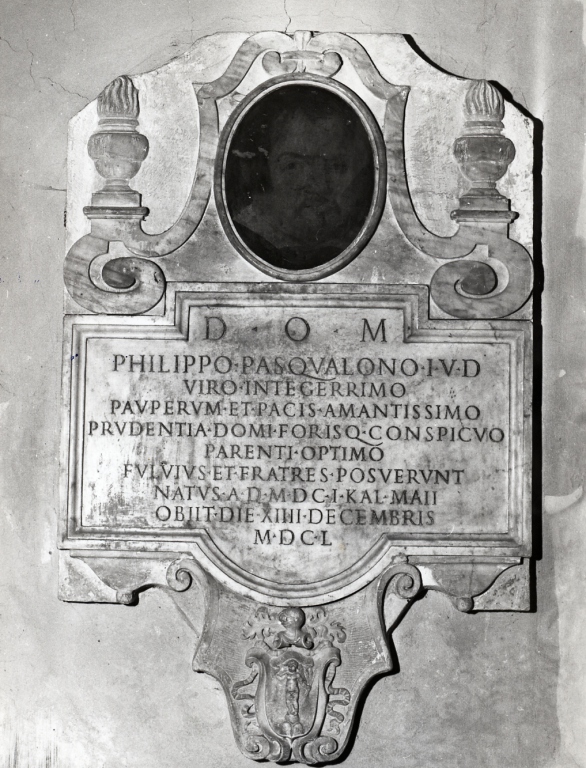 D · O · M
PHILIPPO·PASQVALONO·I·V·D
VIRO·INTEGERRIMO
PAVPERVM·ET·PACIS·AMANTISSIMO
PRVDENTIA·DOMI·FORISQ·CONSPICVO
PARENTI·OPTIMO
FVLVIVS·ET·FRATRES·POSVERVNT
NATVS·A·D·M·D·C·I·KAL·MAII
OBIIT·DIE·XIIII·DECEMBRIS
M·D·C·L